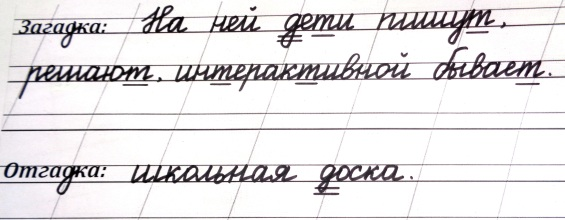 Загадка: На ней дети пишут,
решают, интерактивной бывает.
Отгадка: школьная доска.